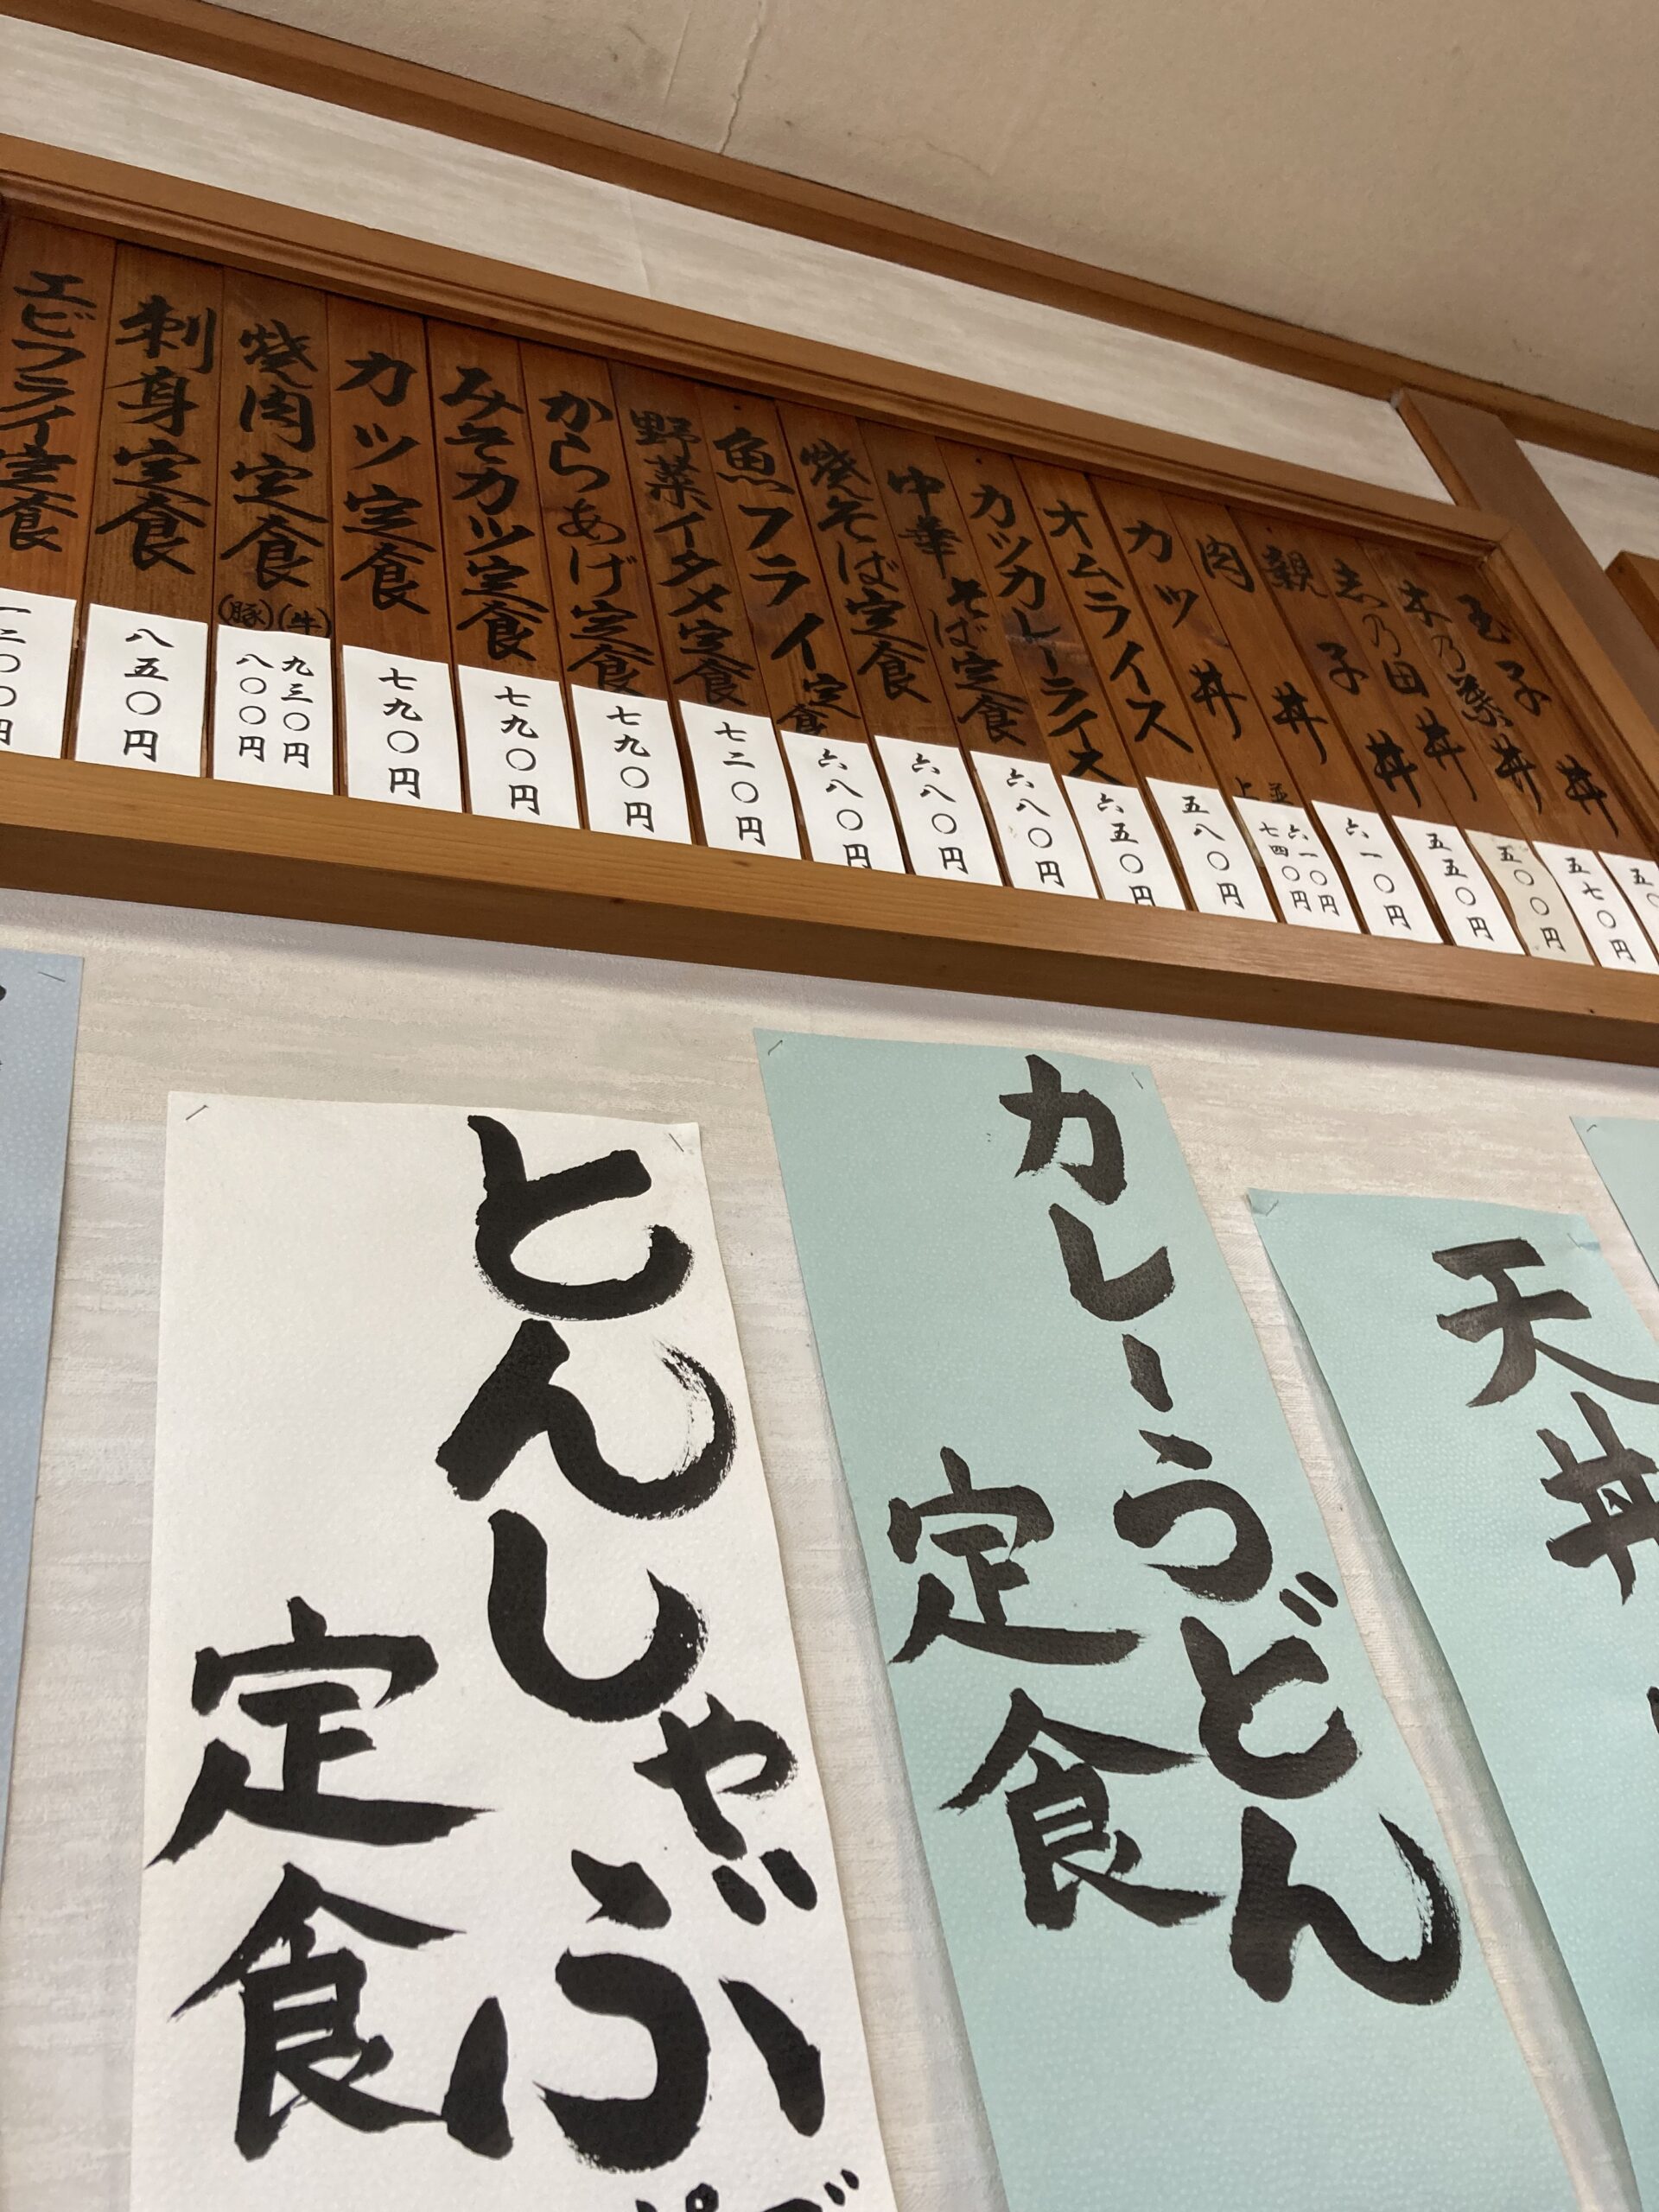 玉子丼
木乃葉丼
五七〇円
志乃田丼
五〇〇円
親子丼
五五〇円
肉丼
六一〇円
カツ丼
並 六一〇円
上 七四〇円
オムライス
五八〇円
カツカレーライス
六五〇円
中華そば定食
六八〇円
焼そば定食
六八〇円
魚フライ定食
六八〇円
野菜イタメ定食
七二〇円
からあげ定食
七九〇円
みそカツ定食
七九〇円
カツ定食
七九〇円
焼肉定食
(牛) 九三〇円
(豚) 八〇〇円
刺身定食
八五〇円
エビフライ定食
一二〇〇円
天丼
カレーうどん
定食
とんしゃぶ
定食